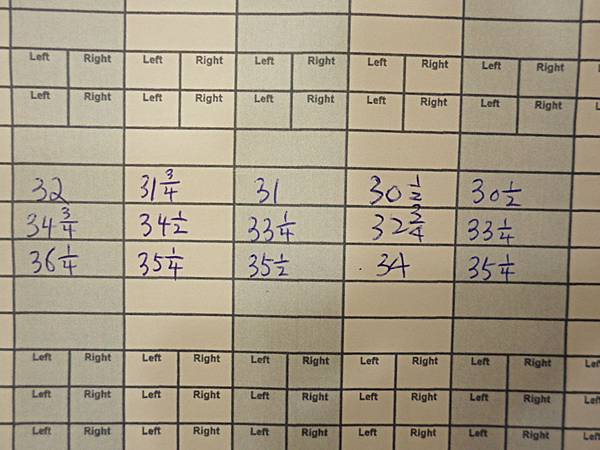 Left Right Left Right Left Right Left Right Left Right
Left Right Left Right Left Right Left Right Left Right
32 31 3/4 31 30 1/2 30 1/2
34 3/4 34 1/2 33 1/4 32 3/4 33 1/4
36 1/4 35 1/4 35 1/2 34 35 1/4
Left Right Left Right Left Right Left Right Left Right Left
Left Right Left Right Left Right Left Right Left Right Left
Left Right Left Right Left Right Left Right Left Right Left